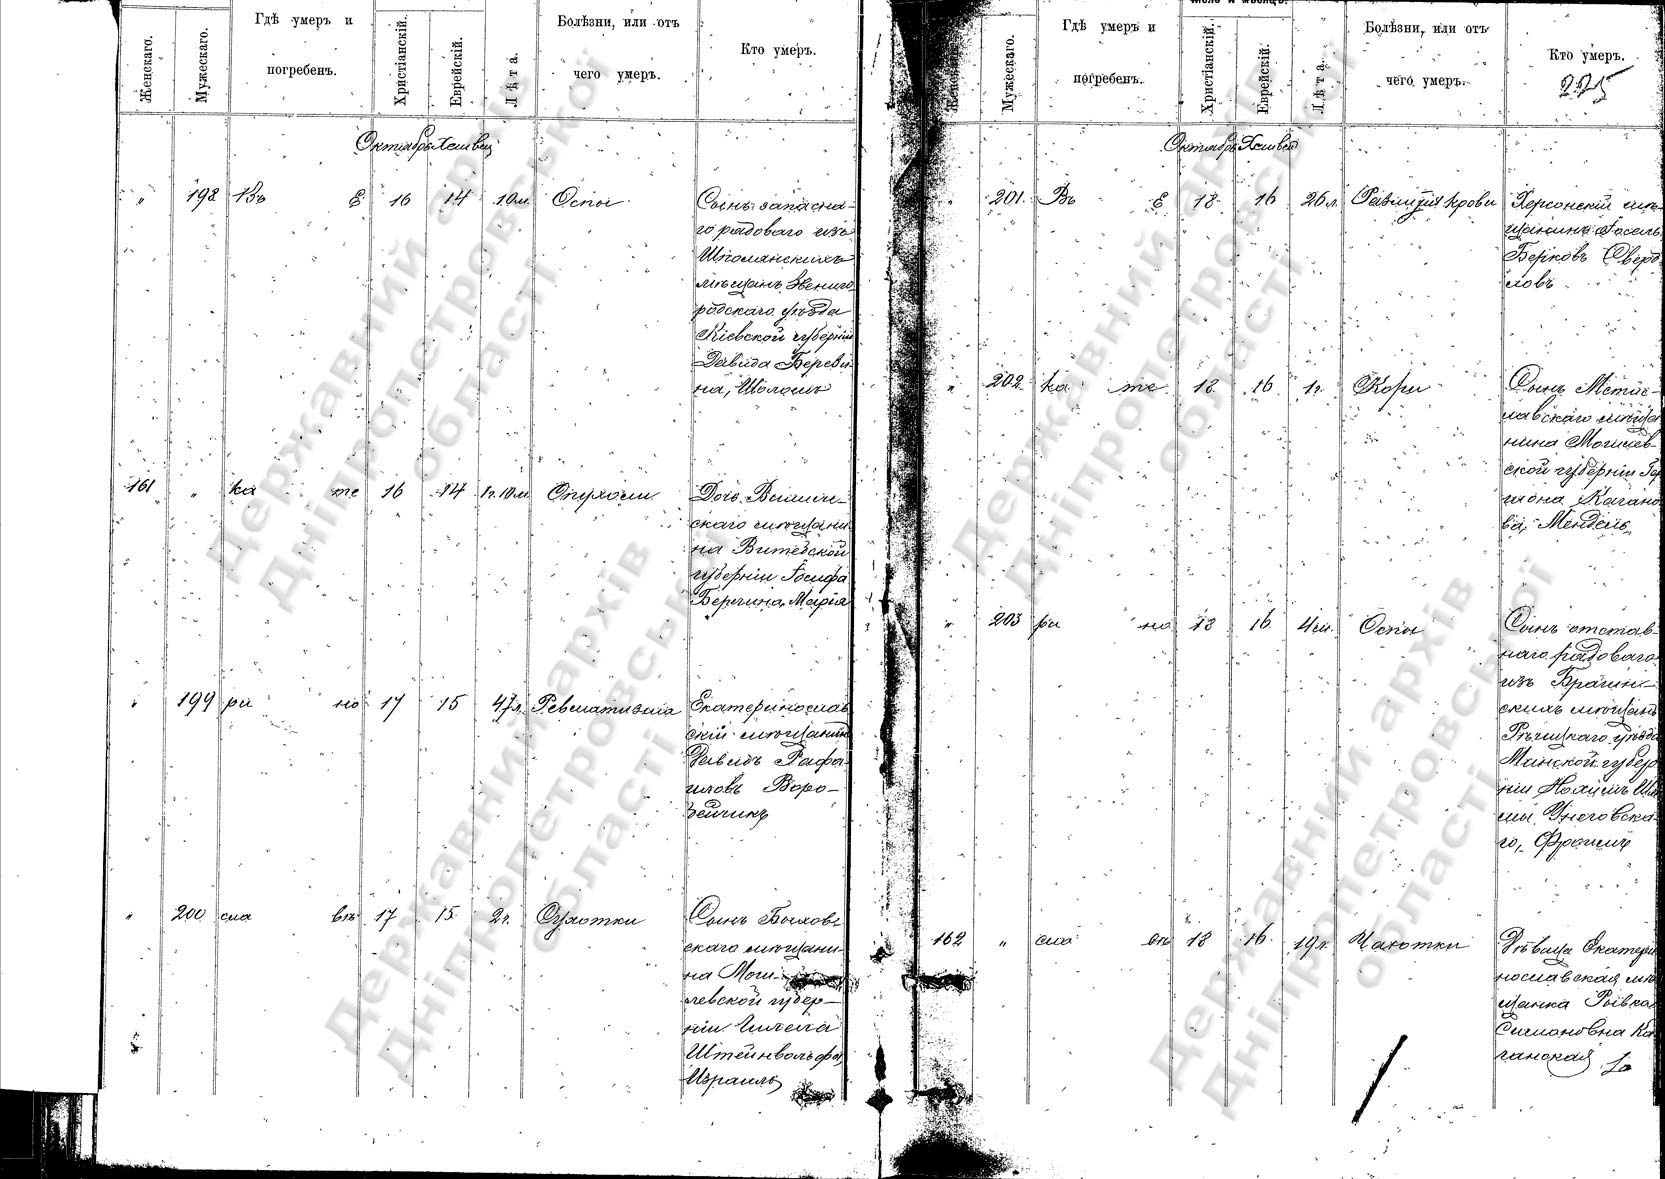 Женскаго.
Мужескаго.
Гдѣ умеръ и
погребенъ.
Христіанскій.
Еврейскій.
Лѣта.
Болѣзни, или отъ
чего умеръ.
Кто умеръ.
Октябрь Хешвец
" 198 Въ Е 16 14 10 м. Оспы
Сынъ запасна-
го рядоваго изъ
Шполянскихъ
мѣщанъ Звениго
родскаго уѣзда
Кіевской губерніи
Давида Береви
на, Шоломъ
161 " ка те 16 14 1 г. 10 м. Опухоли
Дочь
скаго мѣщани
на Витебской
губерніи Іосифа
Марія
" 199 ри но 17 15 47 л. Ревматизма
Екатеринослав
скій мѣщанинъ
Давидъ Рафа
иловъ Воро-
бейчикъ
" 200 сла въ 17 15 2 г. Сухотки
Сынъ Быхов-
скаго мѣщани-
на Моги-
левской губер-
ніи Гилеля
Штейнвольфа,
Израиль
Женскаго.
Мужескаго.
Гдѣ умеръ и
погребенъ.
число и мѣсяцъ.
Христіанскій.
Еврейскій.
Лѣта.
Болѣзни, или отъ
чего умеръ.
Кто умеръ.
225
Октябрь Хешвец
" 201 Въ Е 18 16 26 л. Разлитія крови
Херсонскій мѣ-
щанинъ Іосель
Берковъ Сверд
ловъ
" 202 ка те 18 16 1 г. Кори
Сынъ Мстис-
лавскаго мѣща
нина Могилев-
ской губерніи Гер
шона Кагано
ва, Мендель
" 203 ри но 18 16 4 м. Оспы
Сынъ отстав-
наго рядоваго
изъ Брагин-
скихъ мѣщанъ
Рѣчицкаго уѣзда
Минской губер
ніи Нохимъ
го, Фроимъ
162 " сла въ 18 16 19 л. Чахотки
Дѣвица Екатери
нославская мѣ
щанка Рывка
Симоновна Ка
ганская
Державний архів
Дніпропетровської
області
Державний архів
Дніпропетровської
області
Державний архів
Дніпропетровської
області
Державний архів
Дніпропетровської
області